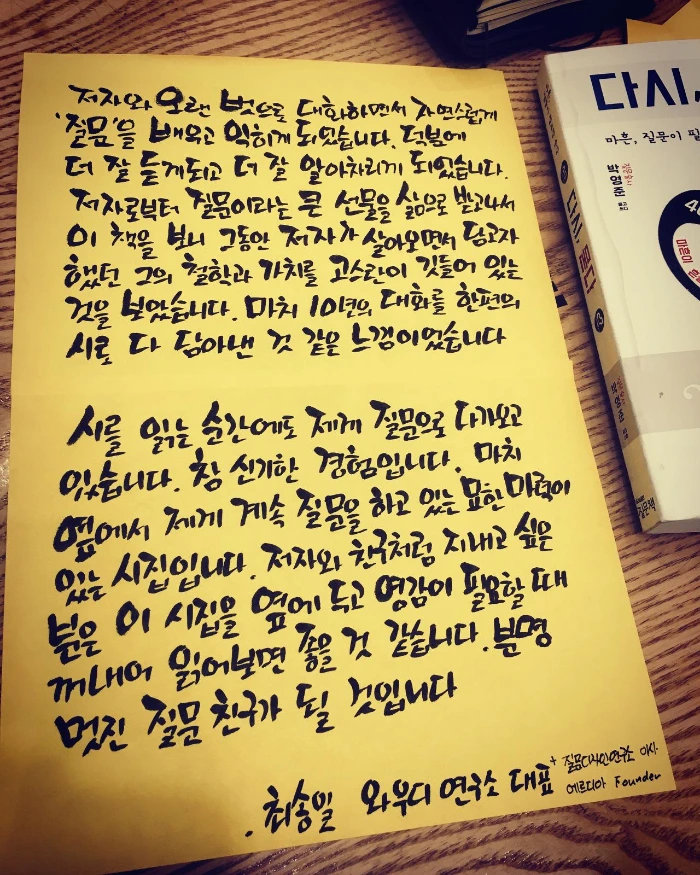 저자와 오랜 벗으로 대화하면서 자연스럽게
'질문'을 배우고 익히게 되었습니다. 덕분에
더 잘 듣게되고 더 잘 알아차리게 되었습니다.
저자로부터 질문이라는 큰 선물을 삶으로 받고나서
이 책을 보니 그동안 저자가 살아오면서 담고자
했던 그의 철학과 가치를 고스란이 깃들어 있는
것을 보았습니다. 마치 10년의 대화를 한편의
시로 다 담아낸 것 같은 느낌이었습니다
시를 읽는 순간에도 제게 질문으로 다가오고
있습니다. 참 신기한 경험입니다. 마치
옆에서 제게 계속 질문을 하고 있는 묘한 마력이
있는 시집입니다. 저자와 친구처럼 지내고 싶은
분은 이 시집을 옆에 두고 영감이 필요할 때
꺼내어 읽어보면 좋을 것 같습니다. 분명
멋진 질문 친구가 될 것입니다
. 최송일 와우디 연구소 대표
+ 질문디자인연구소 이사.
에르디아 Founder
다시,
마흔, 질문이 필
박영준
다시, 묻다
박영준
질문책